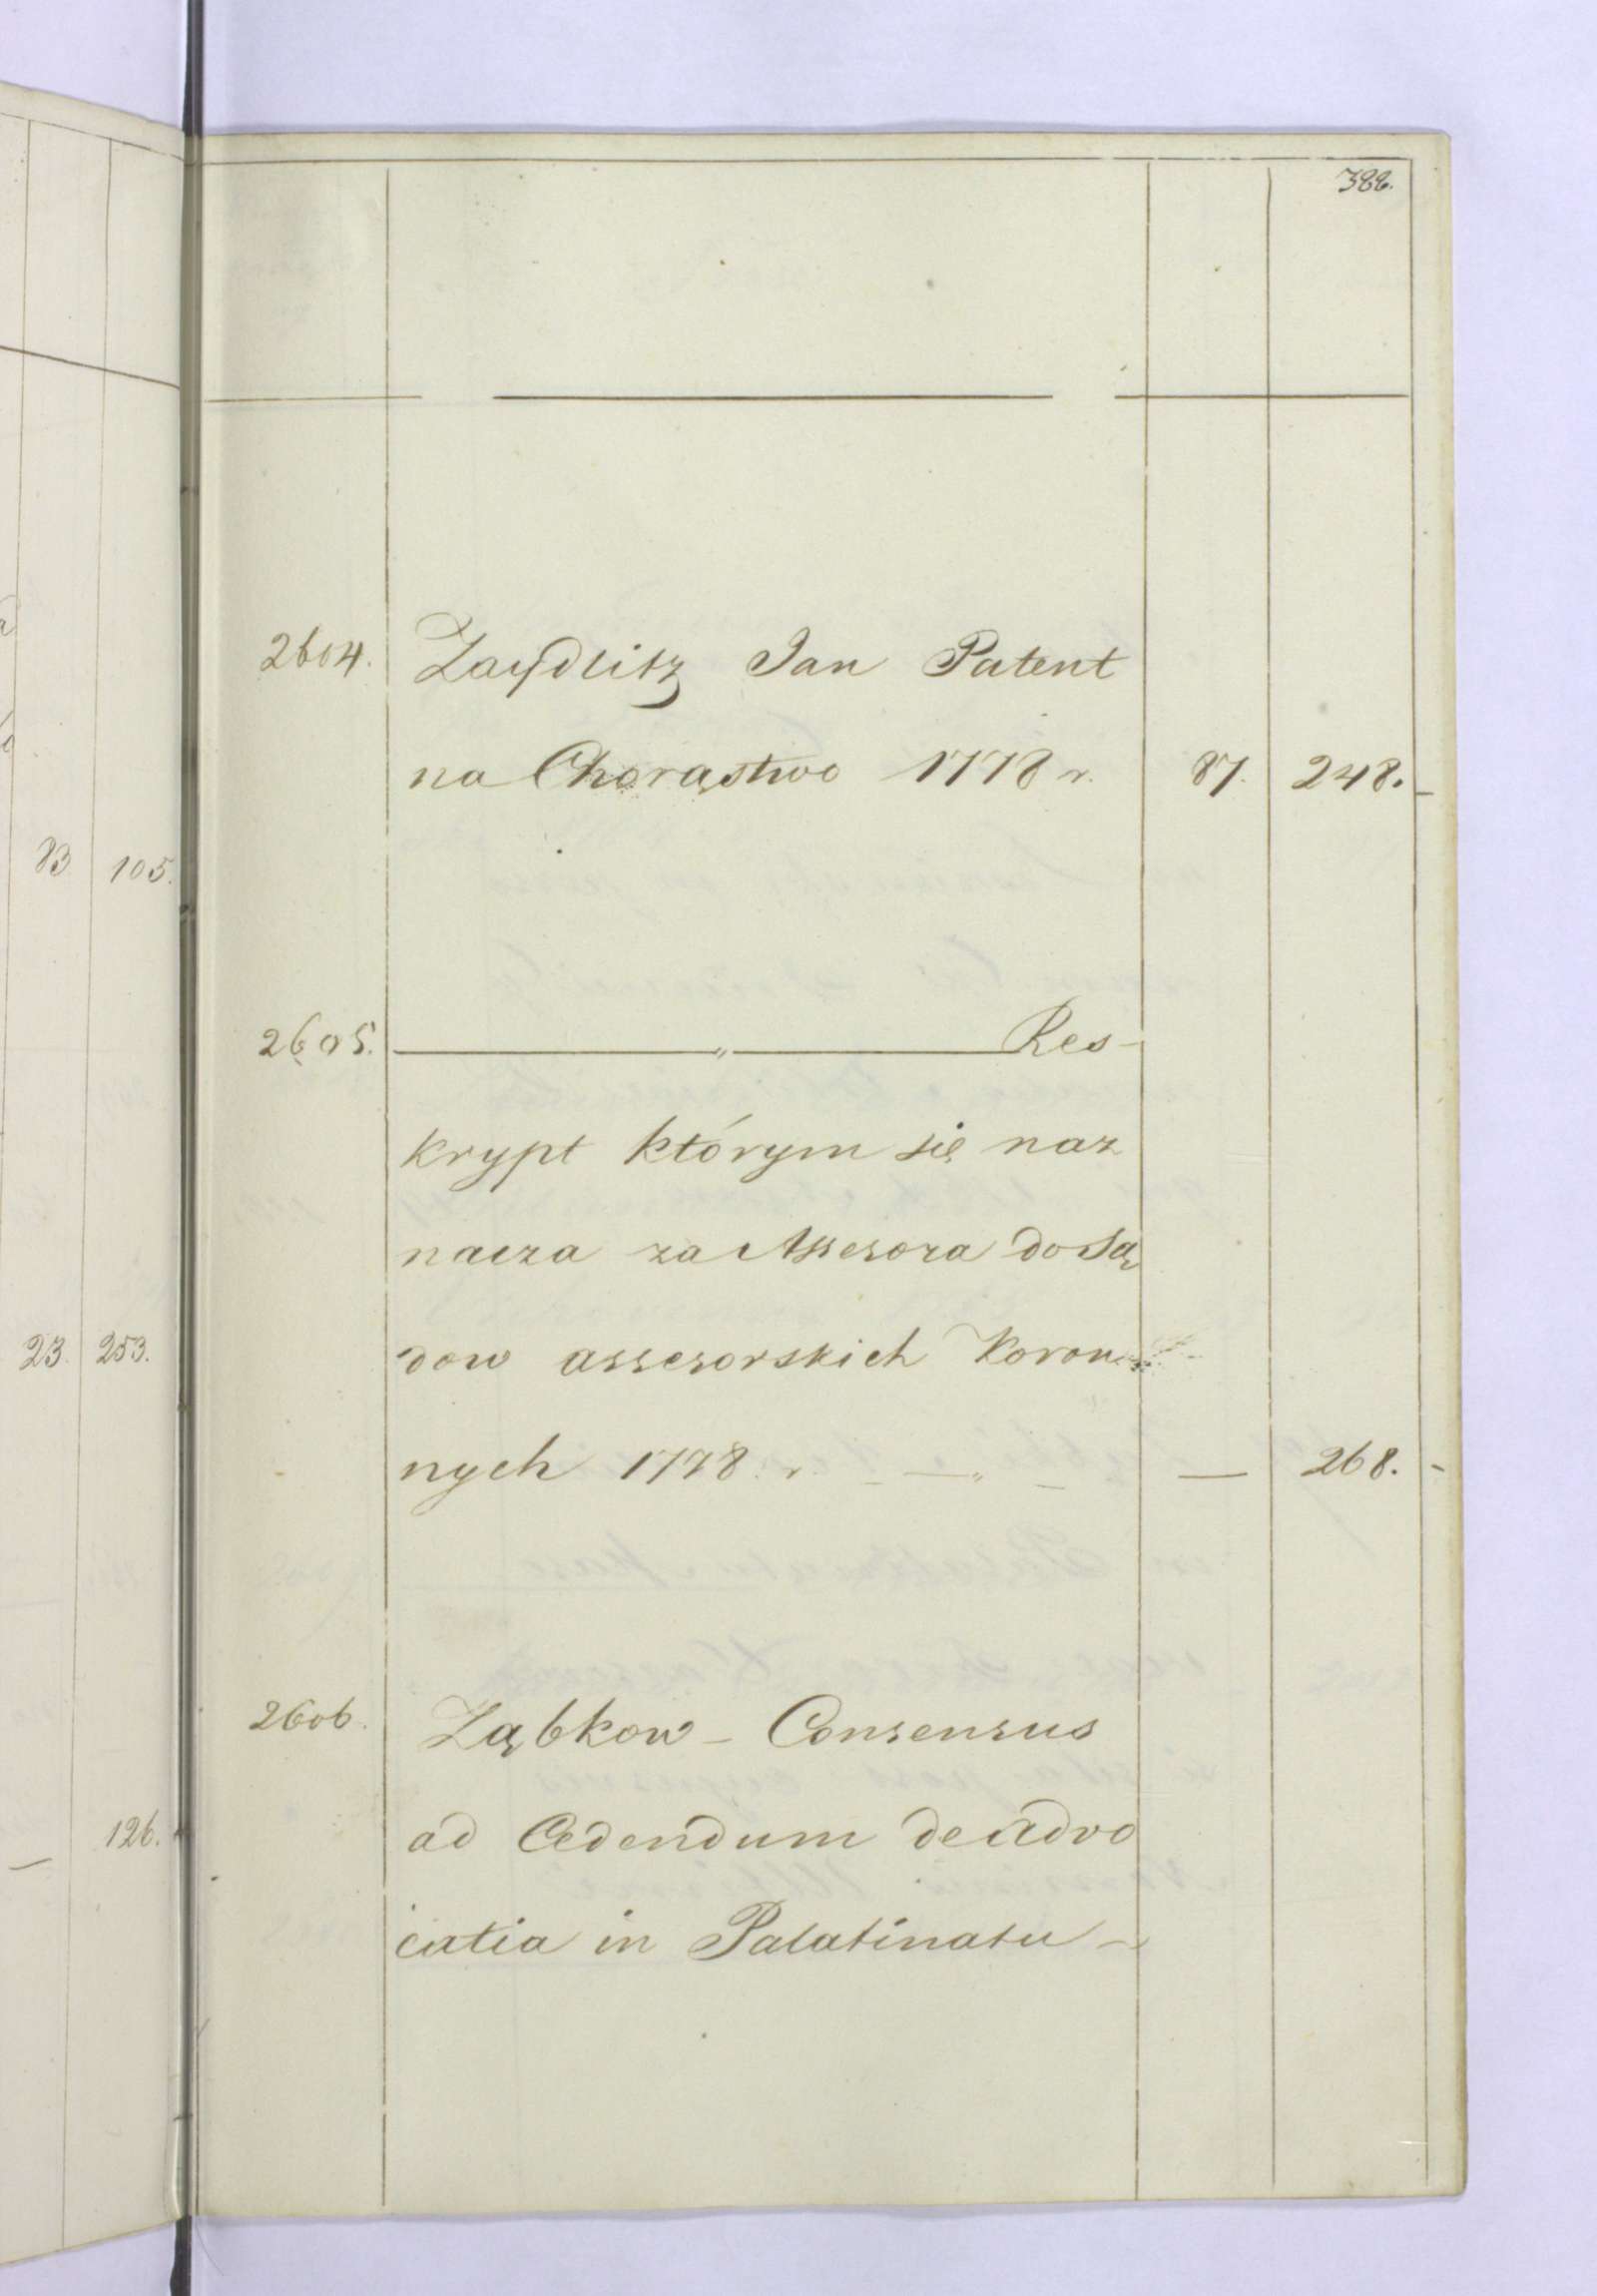 388.
2604. Zaydlitz Jan Patent
na Chorąstwo 1778 r. 87. 248.
83 105.
2605. „ Res-
krypt którym się naz
nacza za Assesora do Są
dow assesorskich Koron
23. 253.
nych 1778 r. — „ — — 268.
2606. Ząbkow - Consensus
ad Cedendum de advo
— 126.
catia in Palatinatu -